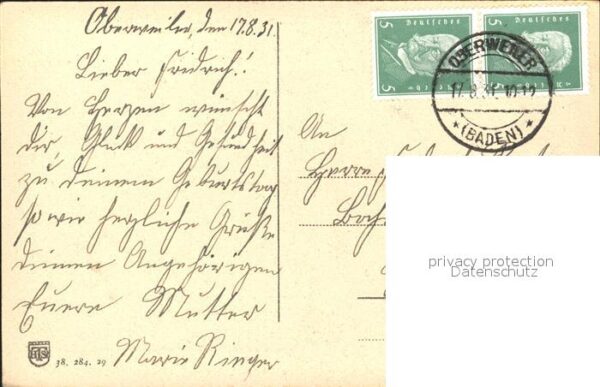 Oberweiler, den 17.8.31.
Lieber Fridrich!
Von Herzen wünscht
dir Glück und Gesundheit
zu deinem Geburtstag
sowie herzliche Grüße
deinen Angehörigen
Euere Mutter
Marie Ringer
38. 284. 29
5 Deutsches 5
5 Deutsches 5
OBERWEILER
17.8.31. 10-12
(BADEN)
An
Herrn
privacy protection
Datenschutz